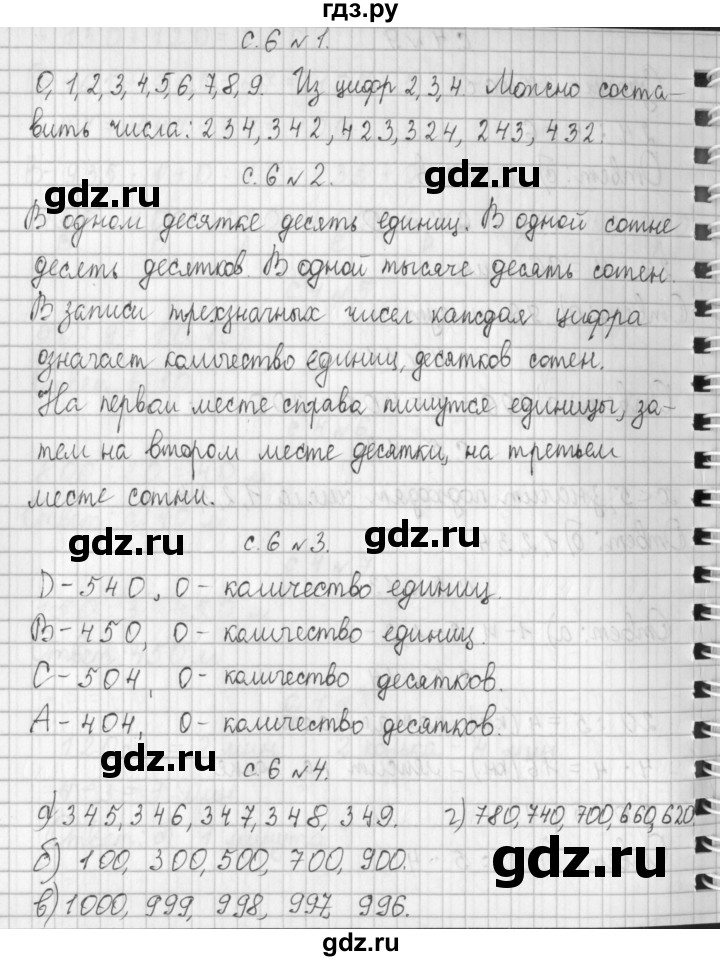 гдз.ру
с.6 №1.
0,1,2,3,4,5,6,7,8,9. Из цифр 2,3,4. Можно соста-
вить числа: 234, 342, 423, 324, 243, 432.
с.6 №2.
gdz.ru gdz.ru
В одном десятке десять единиц. В одной сотне
десять десятков. В одной тысяче десять сотен.
В записи трехзначных чисел каждая цифра
означает количество единиц, десятков сотен.
На первом месте справа пишутся единицы, за-
тем на втором месте десятки, на третьем
месте сотни.
gdz.ru с.6 №3. gdz.ru
D-540, 0- количество единиц.
В-450, 0- количество единиц.
С-504, 0- количество десятков.
А-404, 0- количество десятков.
gdz.ru с.6 №4.
а) 345, 346, 347, 348, 349. г) 780, 740, 700, 660, 620
б) 100, 300, 500, 700, 900.
gdz.ru
в) 1000, 999, 998, 997, 996.
gdz.ru